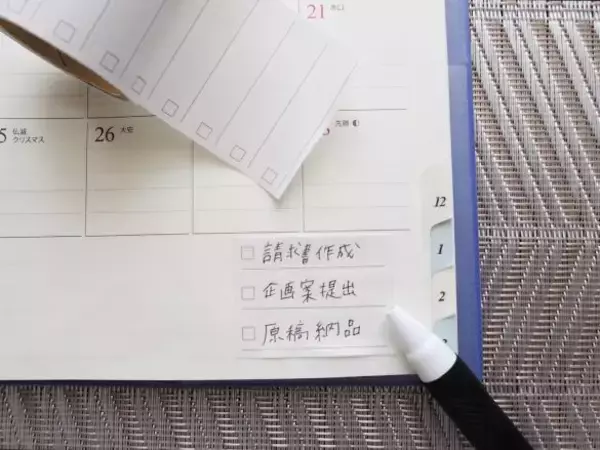 21 友口
5 仏滅
クリスマス
26 大安
先勝
12
1
2
請求書作成
企画案提出
原稿納品